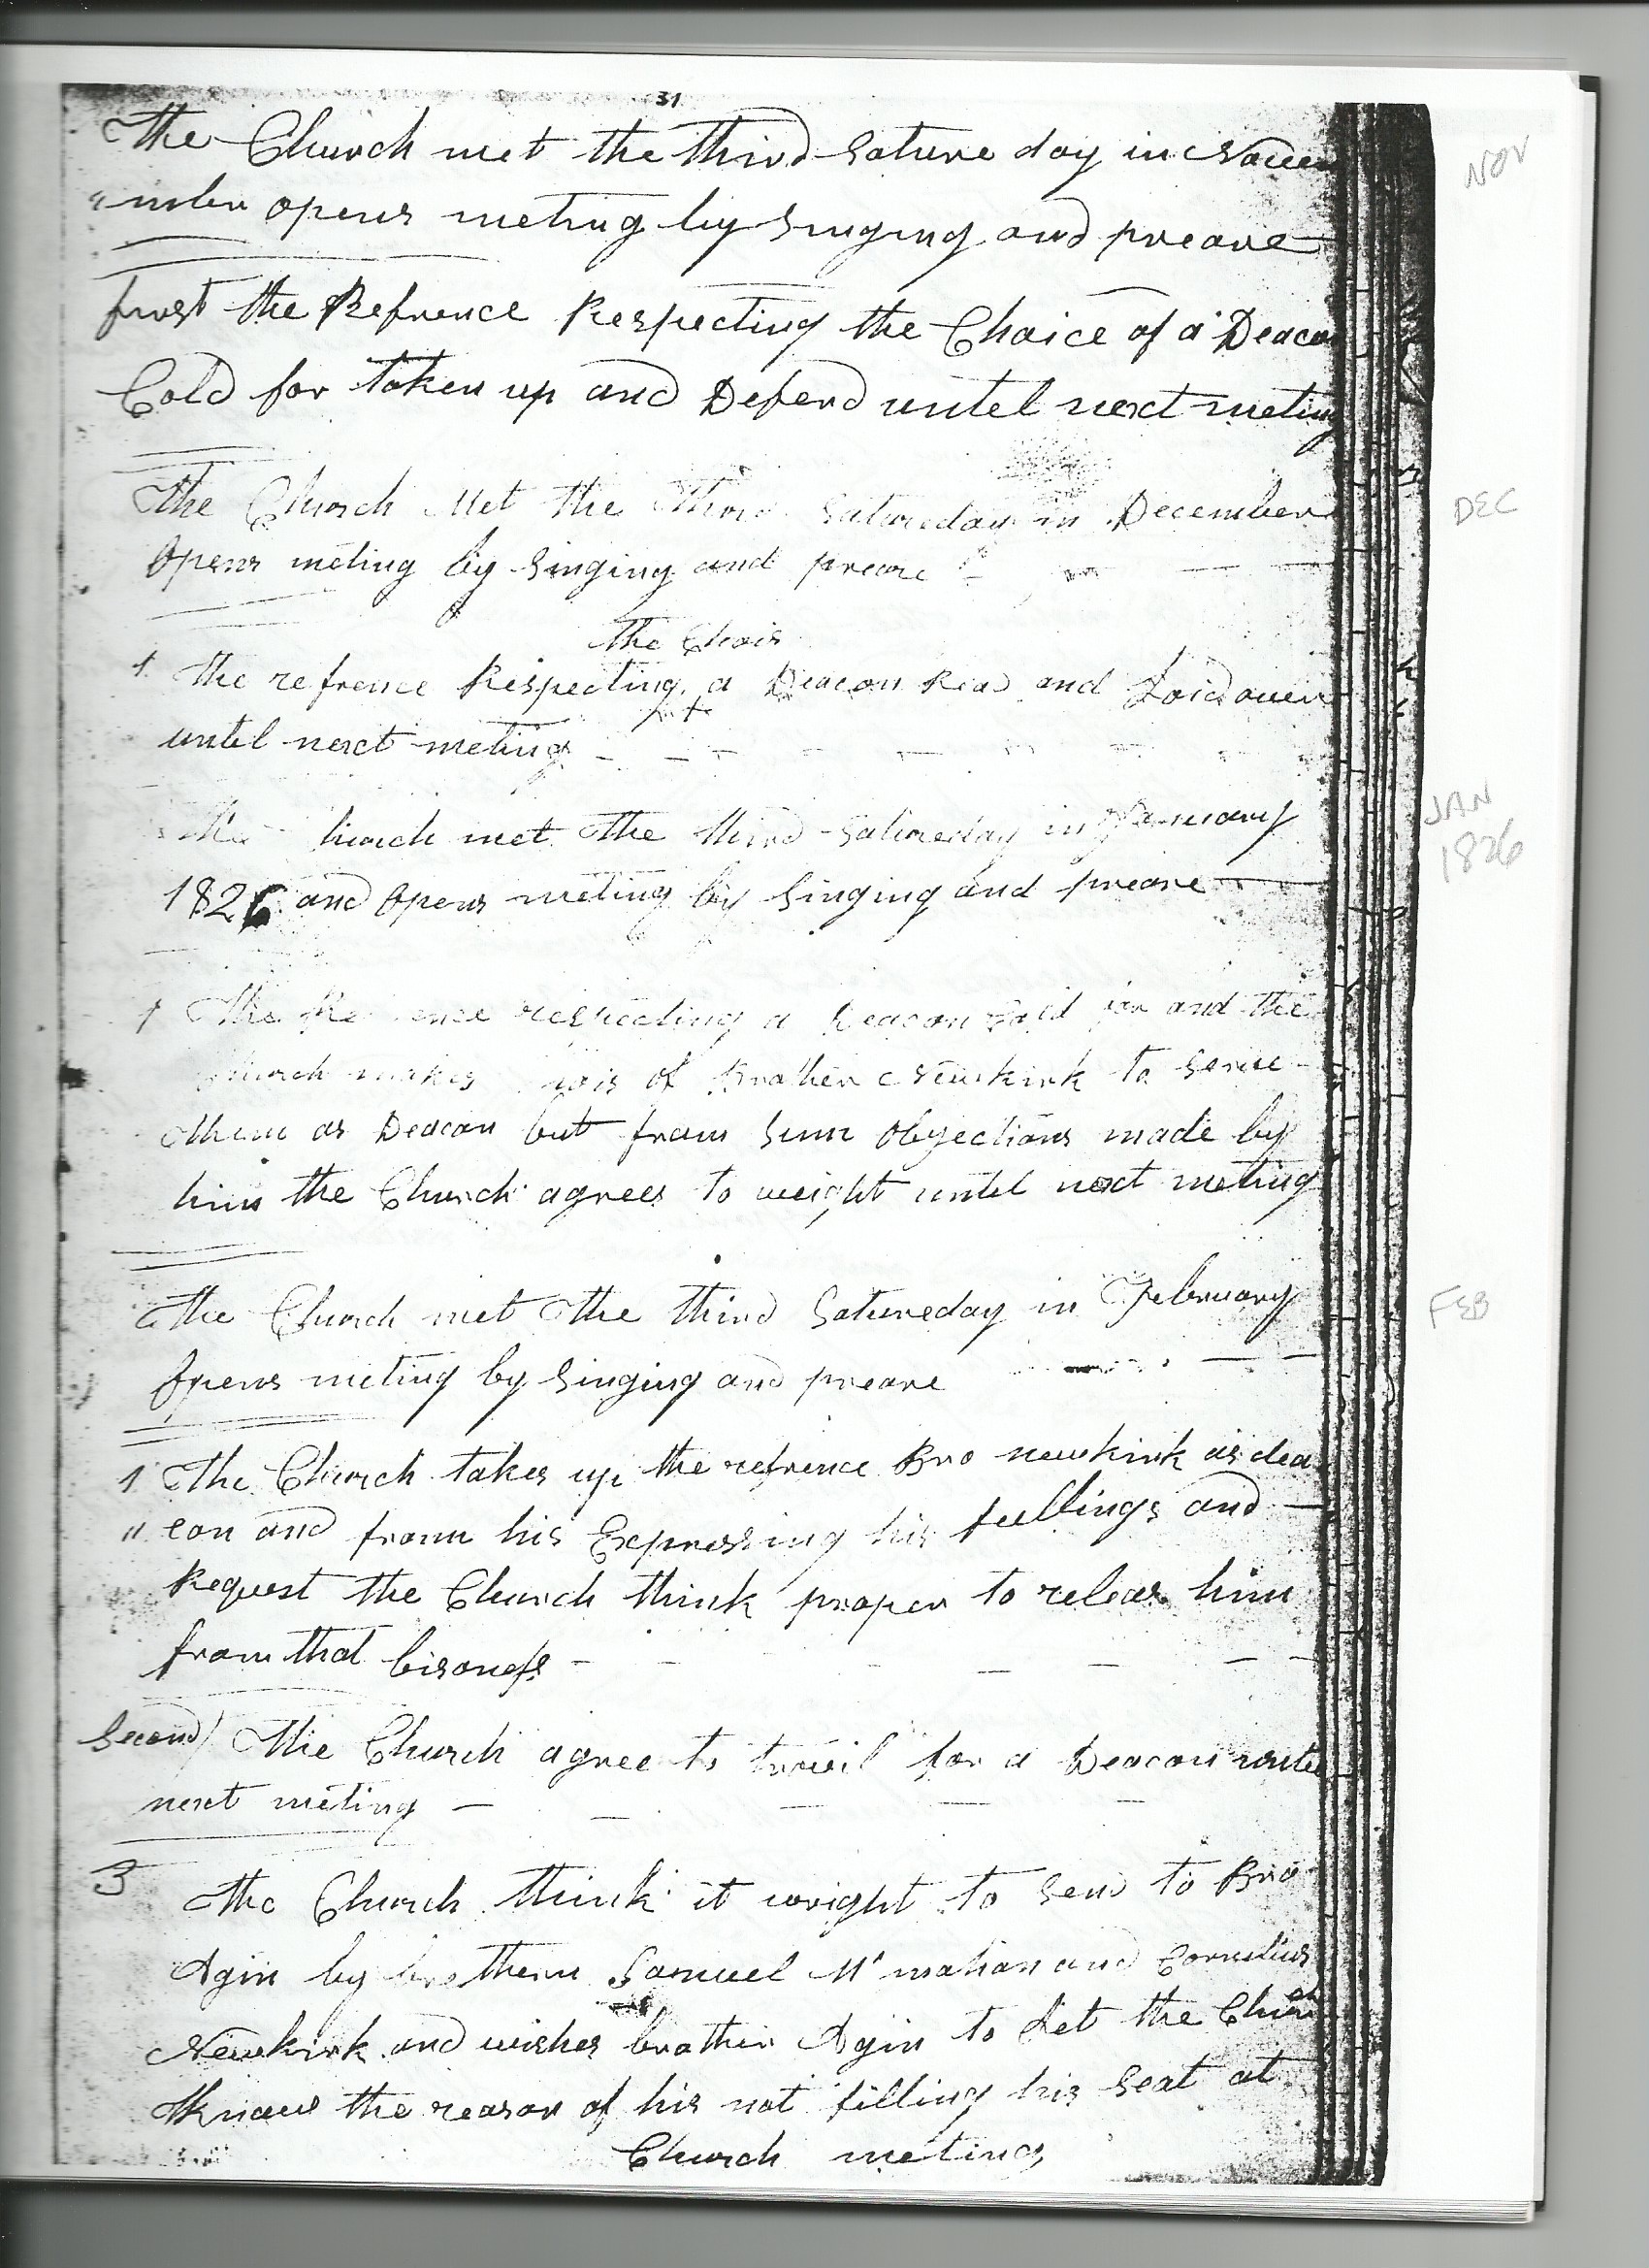 31
The Church met the third Sature day in Novem
"mber opens meting by Singing and preare
NOV
furst the Refrence Respecting the Choice of a Deacon
Cold for taken up and Deferd until next meting
The Church Met the Third Satureday in December
DEC
Opens meting by Singing and preare
the Chois
1 The refrence Respecting a Deacon Read and Laid over
until next meting
The hurch met The third Satureday in January
JAN
1826 and Opens meting by Singing and preare
1826
1 The Re ence respecting a Deacon Cold for and the
Church makes ois of Brother Newkirk to Serve
Them as Deacon but from Sum Objections made by
him the Church agrees to weight until next meting
The Church met The third Satureday in February
FEB
Opens meting by Singing and preare
1 The Church takes up the refrence Bro newkirk as dea
" con and from his Expressing his feellings and
Request the Church think proper to releas him
from that bisoness
Second/ The Church agree to travil for a Deacon until
next meting
3 The Church think it wright to Send to Bro
Agin by brothern Samuel Mc mahan and Cornelius
Newkirk and wishes brother Agin to Let the Church
Know the reason of his not filling his Seat at
Church meting